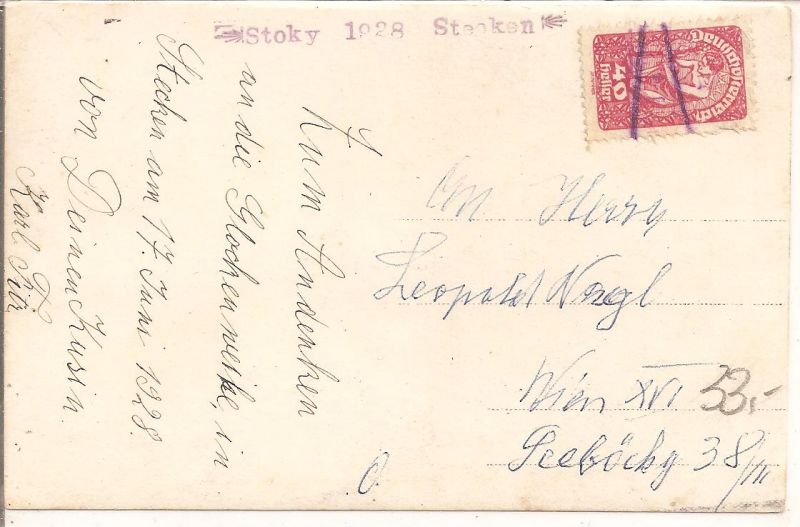 Stoky 1928 Stecken
Deutschösterreich
40
heller
Zum Andenken
an die Glockenweihe, in
Stecken am 17. Juni 1928.
von Deinen Kusin.
Karl
An Herrn
Leopold Nagl
Wien XVI
38/III
53,-